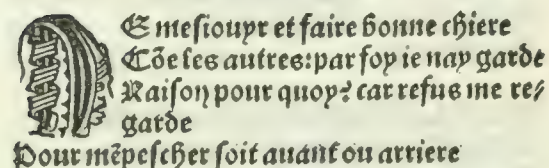 DE mesiouyr et faire bonne chiere
Cōe les autres: par foy ie nay garde
Raison pour quoy? car refus me re/
garde
Pour mēpescher soit auāt ou arriere